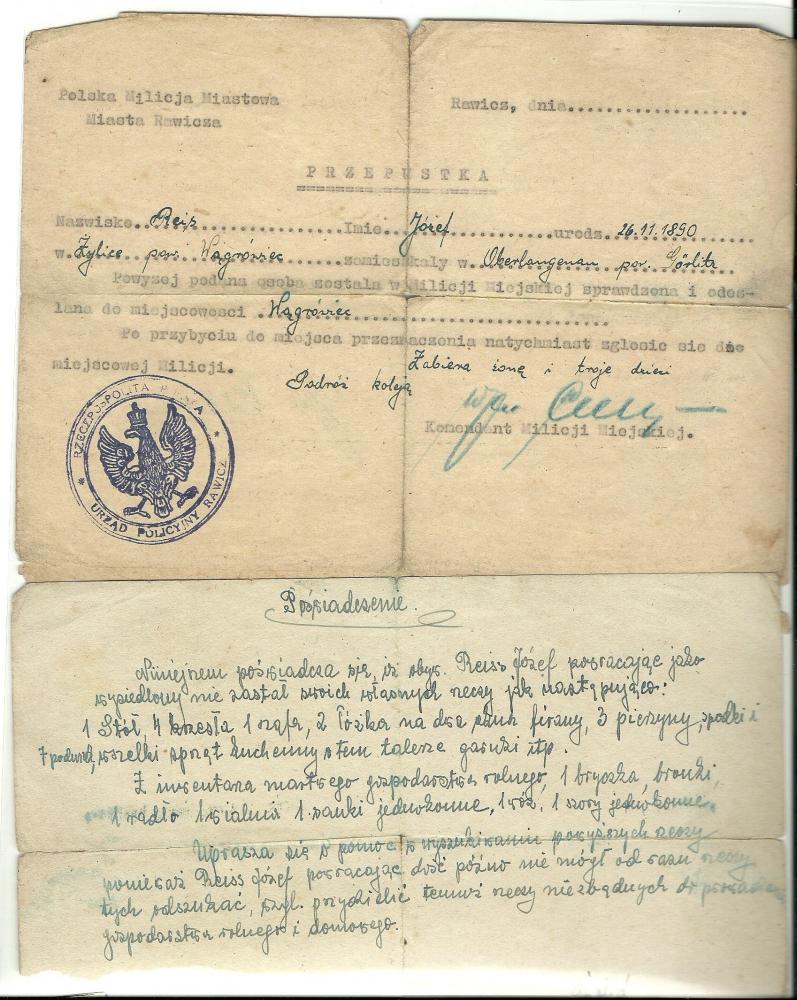 Polska Milicja Miastowa
Miasta Rawicza
Rawicz, dnia....................
PRZEPUSTKA
Nazwisko Reis Imie Józef urodz. 26.11.1890
w Żylice pow. Wągrówiec zamieszkaly w Oberlangenau pow. Görlitz
Powyzej podana osoba zostala w Milicji Miejskiej sprawdzona i odes-
lana do miejscowosci Wągrówiec
Po przybyciu do miejsca przeznaczenia natychmiast zglosic sie do
miejscowej Milicji.
Zabiera żonę i troje dzieci
Podróż koleją
Komendant Milicji Miejskiej.
RZECZPOSPOLITA POLSKA
URZĄD POLICYJNY RAWICZ
Poświadczenie.
Niniejszem poświadcza się, iż obyw. Reiss Józef powracając jako
wysiedlony nie zastał swoich własnych rzeczy jak następująco:
1 Stół, 4 krzesła 1 szafa, 2 łóżka na dwa firany, 3 pierzyny, spodki i
7 poduszek, wszelki sprzęt kuchenny s tem talerze garnki itp.
Z inwentarza martwego gospodarstwa rolnego, 1 bryczka bronki,
1 radło 1 wialnia 1 sanki jednokonne, 1 wóz, 1 szory jednokonne.
Uprasza się o pomoc w wyszukiwaniu powyższych rzeczy
ponieważ Reiss Józef powracając dość późno nie mógł od razu rzeczy
tych odszukać, wzgl. przydzielić temuż rzeczy niezbędnych do
gospodarstwa rolnego i domowego.